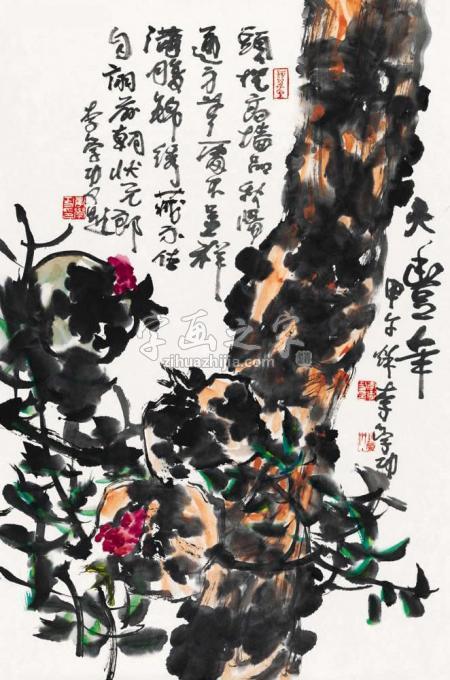 大豐年
甲午 李学功
頭枕高墙 秋陽
通身 不呈祥
满腹锦绣藏不住
自詡前朝状元郎
李学功又题
字画之家
zihuazhijia.com